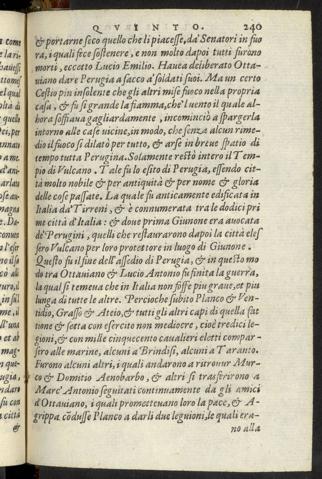 QVINTO. 240
& portarne seco quello che li piacesse, da' Senatori in fuo
ra, i quali fece sostenere, e non molto dapoi tutti furono
morti, eccetto Lucio Emilio. Haueа deliberato Otta-
uiano dare Perugia a sacco a' soldati suoi. Ma un certo
Cestio piu insolente che gli altri mise fuoco nella propria
casa, & fu si grande la fiamma, che'l uento il quale al-
hora soffiaua gagliardamente, incominciò a spargerla
intorno alle case uicine, in modo, che senza alcun rime-
dio il fuoco si dilatò per tutto, & arse in breue spatio di
tempo tutta Perugina. Solamente restò intero il Tem-
pio di Vulcano. Tale fu lo esito di Perugia, essendo cit-
tà molto nobile & per antiquità & per nome & gloria
delle cose passate. La quale fu anticamente edificata in
Italia da' Tirreni, & è connumerata tra le dodici pri
me città d'Italia: & doue prima Giunone era auocata
de' Perugini, quelli che restaurarono dapoi la città eles
sero Vulcano per loro protettore in luogo di Giunone.
Questo fu il fine dell'assedio di Perugia, & in questo mo
do tra Ottauiano & Lucio Antonio fu finita la guerra,
la qual si temeua che in Italia non fosse piu graue, et piu
lunga di tutte le altre. Percioche subito Planco & Ven-
tidio, Grasso & Ateio, & tutti gli altri capi di quella fat
tione & setta con esercito non mediocre, cioè tredici le-
gioni, & con mille cinquecento cauallieri eletti compar-
sero alle marine, alcuni a Brindisi, alcuni a Taranto.
Furono alcuni altri, i quali andarono a ritrouar Mur-
co & Domitio Aenobarbo, & altri si trasferirono a
Marc' Antonio seguitati continuamente da gli amici
d'Ottauiano, i quali prometteuano loro la pace, & A-
grippa cōdusse Planco a darli due leguioni, le quali era-
no alla